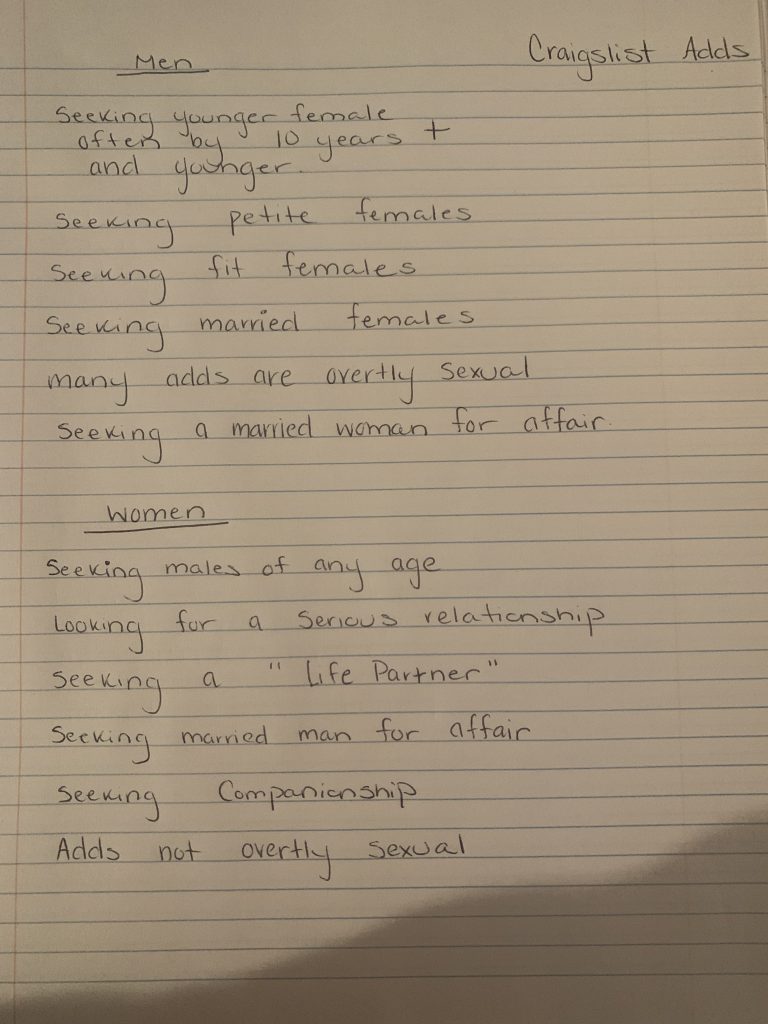 Craigslist Adds
Men
Seeking younger female
often by 10 years +
and younger.
Seeking petite females
Seeking fit females
Seeking married females
many adds are overtly sexual
Seeking a married woman for affair.
Women
Seeking males of any age
Looking for a serious relationship
Seeking a "Life Partner"
Seeking married man for affair
Seeking Companionship
Adds not overtly sexual